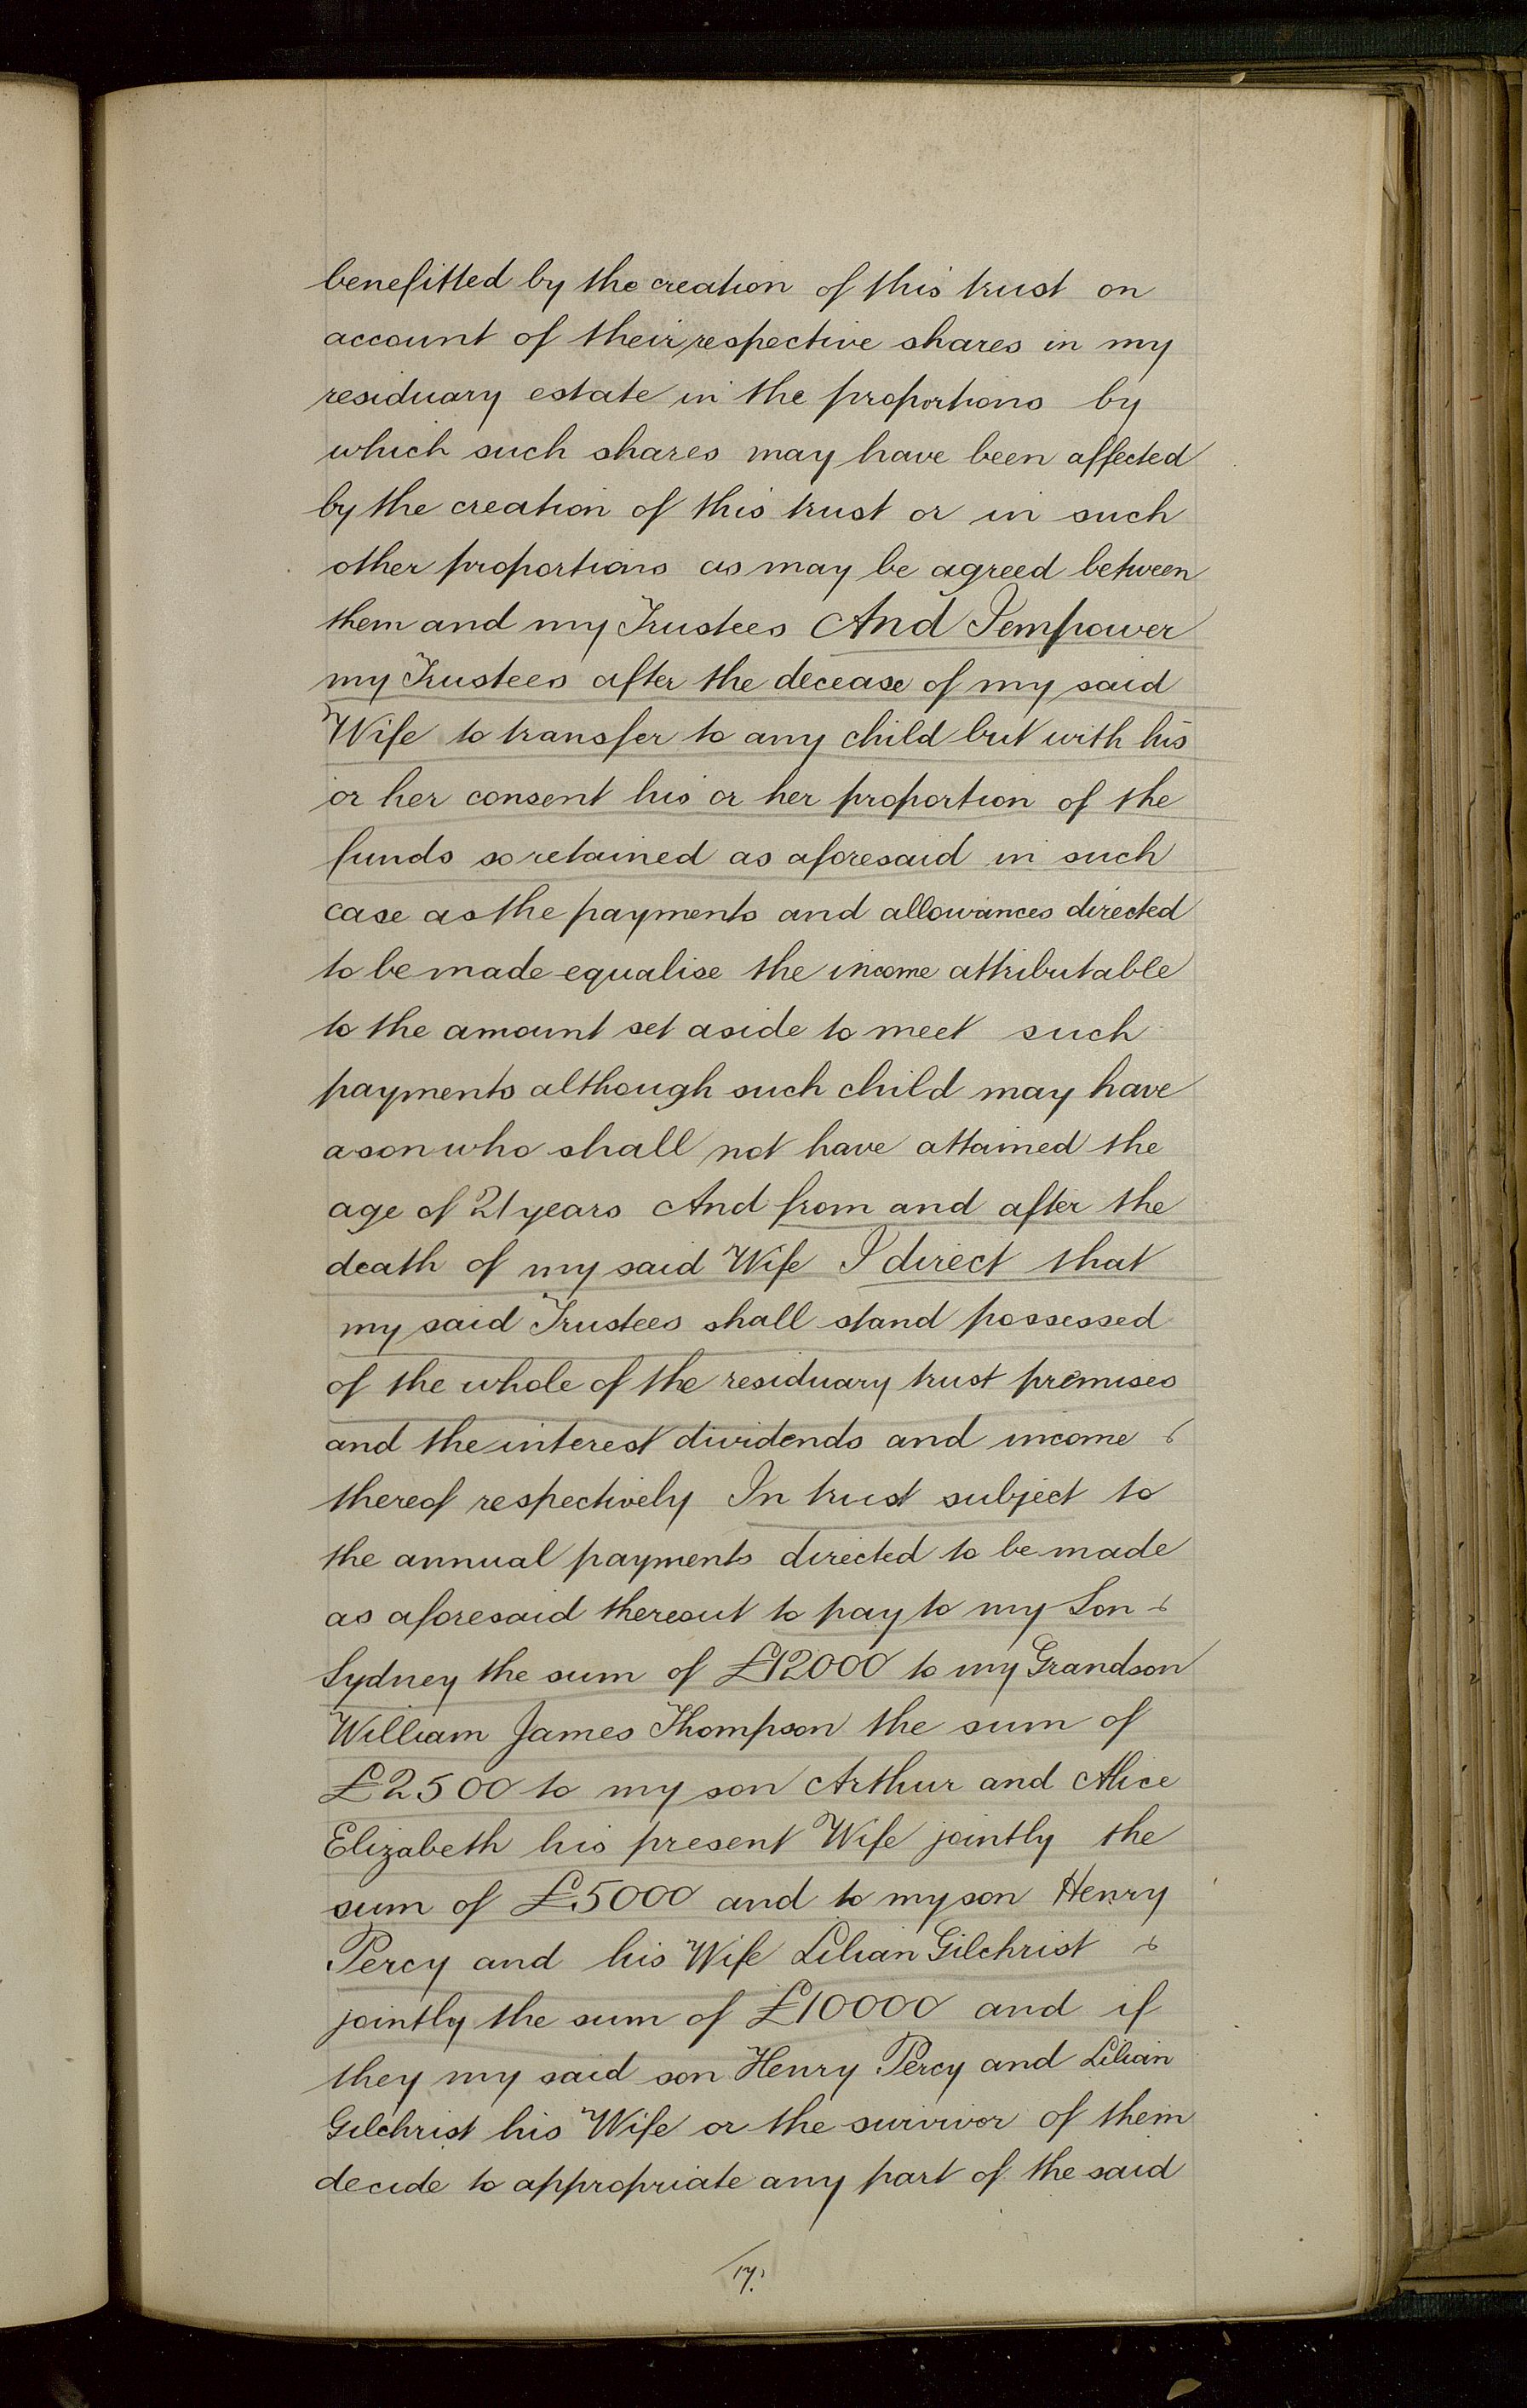 benefitted by the creation of this trust on
account of their respective shares in my
residuary estate in the proportions by
which such shares may have been affected
by the creation of this trust or in such
other proportions as may be agreed between
them and my Trustees And I empower
my Trustees after the decease of my said
Wife to transfer to any child but with his
or her consent his or her proportion of the
funds so retained as aforesaid in such
case as the payments and allowances directed
to be made equalise the income attributable
to the amount set aside to meet such
payments although such child may have
a son who shall not have attained the
age of 21 years And from and after the
death of my said Wife I direct that
my said Trustees shall stand possessed
of the whole of the residuary trust premises
and the interest dividends and income
thereof respectively In trust subject to
the annual payments directed to be made
as aforesaid thereout to pay to my Son
Sydney the sum of £12000 to my Grandson
William James Thompson the sum of
£2500 to my son Arthur and Alice
Elizabeth his present Wife jointly the
sum of £5000 and to my son Henry
Percy and his Wife Lilian Gilchrist
jointly the sum of £10000 and if
they my said son Henry Percy and Lilian
Gilchrist his Wife or the survivor of them
decide to appropriate any part of the said
17.